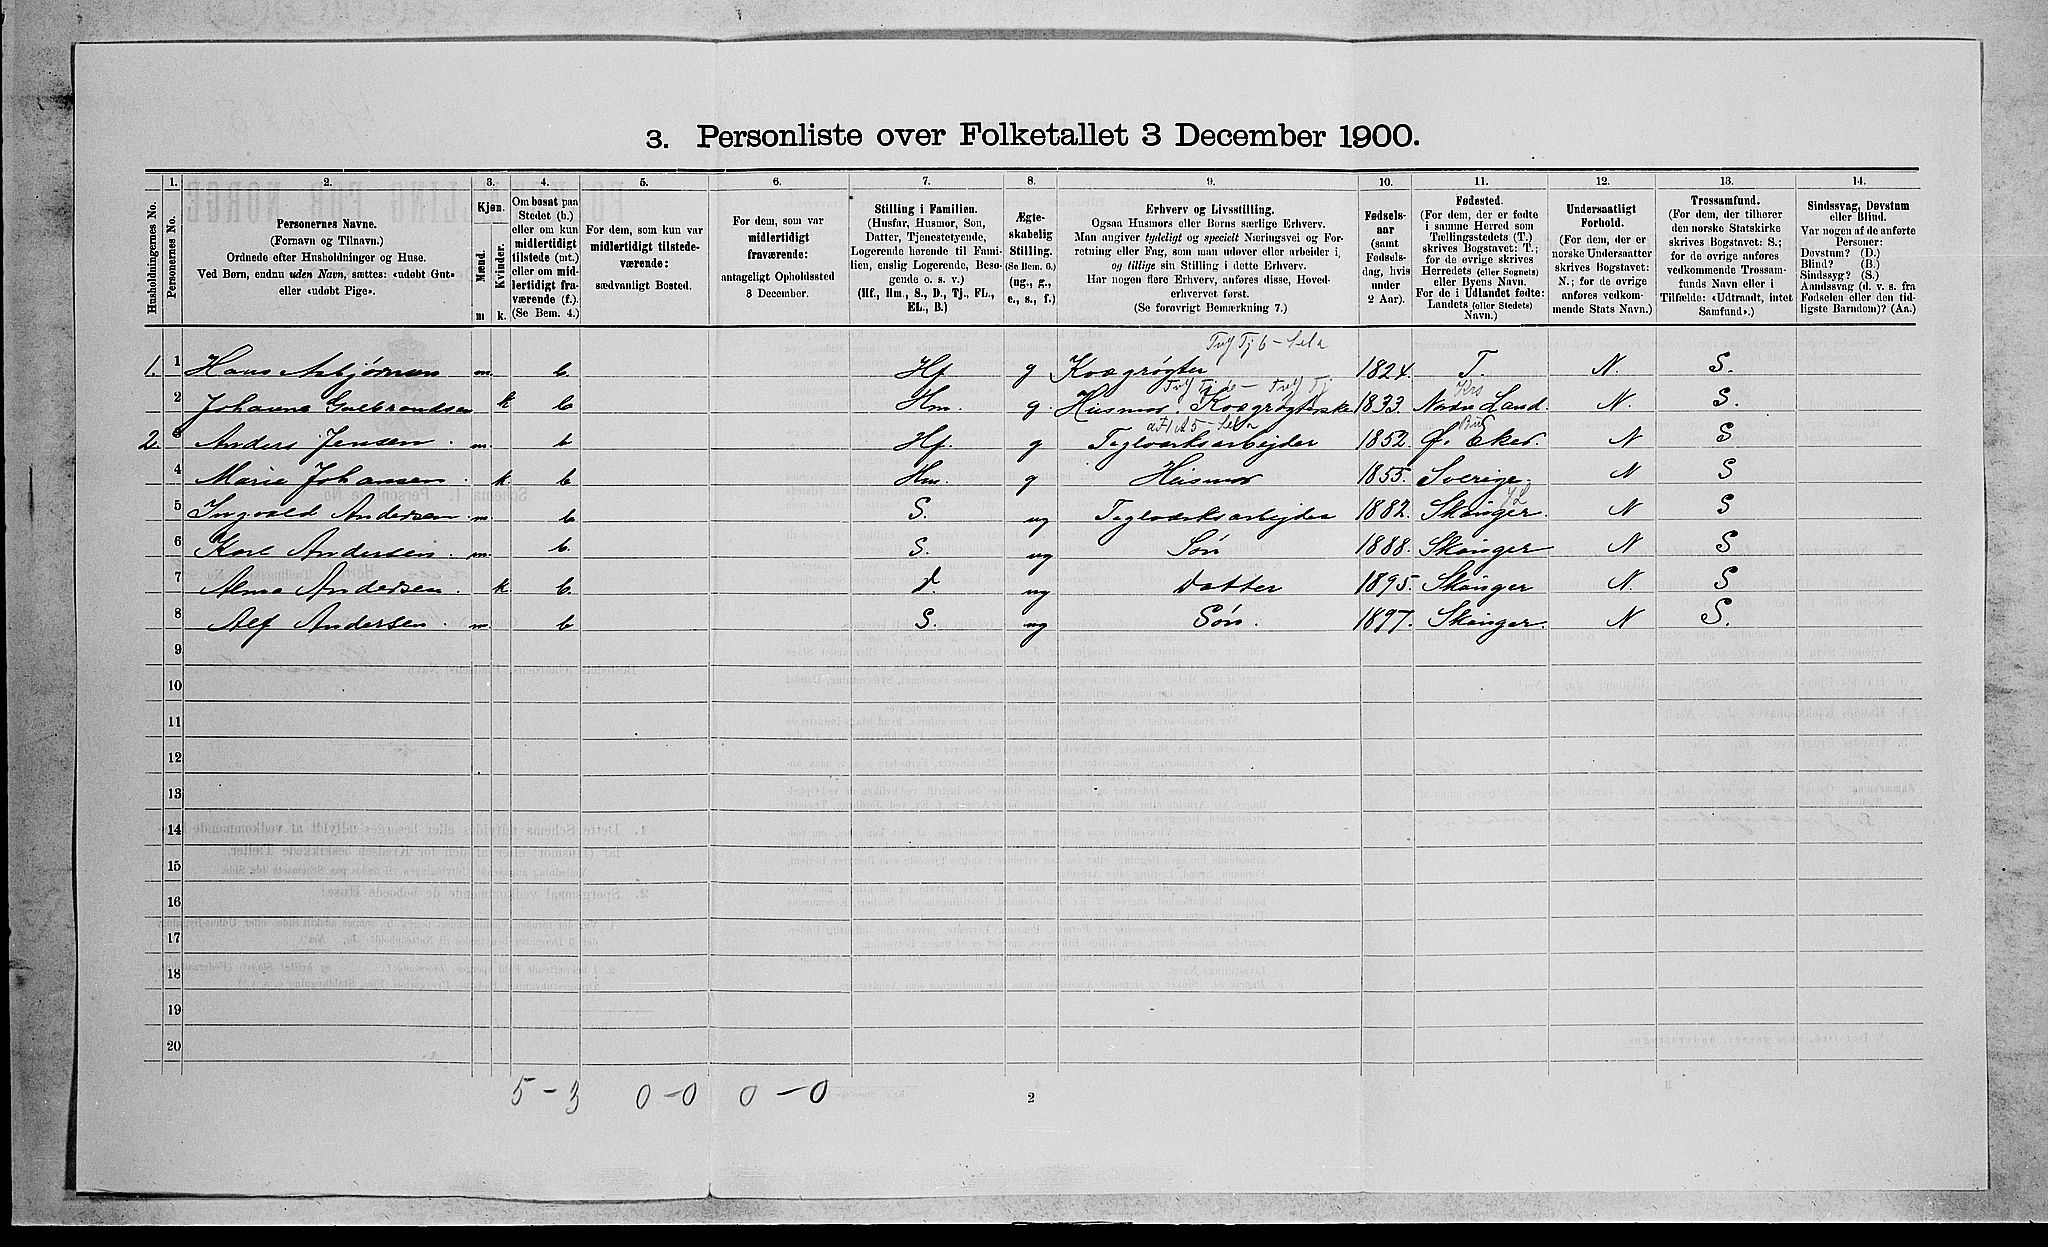 3. Personliste over Folketallet 3 December 1900.
1. 2. 3. 4. 5. 6. 7. 8. 9. 10. 11. 12. 13. 14.
Husholdningernes No.
Personernes No.
Personernes Navne.
(Fornavn og Tilnavn.)
Ordnede efter Husholdninger og Huse.
Ved Børn, endnu uden Navn, sættes: «udøbt Gut»
eller «udøbt Pige».
Kjøn.
Mænd.
Kvinder.
m k.
Om bosat paa
Stedet (b.)
eller om kun
midlertidigt
tilstede (mt.)
eller om mid-
lertidigt fra-
værende (f.).
(Se Bem. 4.)
For dem, som kun var
midlertidigt tilstede-
værende:
sædvanligt Bosted.
For dem, som var
midlertidigt
fraværende:
antageligt Opholdssted
3 December.
Stilling i Familien.
(Husfar, Husmor, Søn,
Datter, Tjenestetyende,
Logerende hørende til Fami-
lien, enslig Logerende, Besø-
gende o. s. v.)
(Hf., Hm., S., D., Tj., FL.,
EL., B.)
Ægte-
skabelig
Stilling.
(Se Bem. 6.)
(ug., g.,
e., s., f.)
Erhverv og Livsstilling.
Ogsaa Husmors eller Børns særlige Erhverv.
Man angiver tydeligt og specielt Næringsvei og For-
retning eller Fag, som man udøver eller arbeider i,
og tillige sin Stilling i dette Erhverv.
Har nogen flere Erhverv, anføres disse, Hoved-
erhvervet først.
(Se forøvrigt Bemærkning 7.)
Fødsels-
aar
(samt
Fødsels-
dag, hvis
under
2 Aar).
Fødested.
(For dem, der er fødte
i samme Herred som
Tællingsstedets (T.)
skrives Bogstavet: T.;
for de øvrige skrives
Herredets (eller Sognets)
eller Byens Navn.
For de i Udlandet fødte:
Landets (eller Stedets)
Navn.)
Undersaatligt
Forhold.
(For dem, der er
norske Undersaatter
skrives Bogstavet:
N.; for de øvrige
anføres vedkom-
mende Stats Navn.)
Trossamfund.
(For dem, der tilhører
den norske Statskirke
skrives Bogstavet: S.;
for de øvrige anføres
vedkommende Trossam-
funds Navn eller i
Tilfælde: «Udtraadt, intet
Samfund».)
Sindssvag, Døvstum
eller Blind.
Var nogen af de anførte
Personer:
Døvstum? (D.)
Blind? (B.)
Sindssyg? (S.)
Aandssvag (d. v. s. fra
Fødselen eller den tid-
ligste Barndom)? (Aa.)
1. 1 Hans Asbjørnsen m. b. Hf. g Kvægrøgter 1824. T. N. S.
2 Johanne Gulbrandsen k b Hm. g. Husmor. Kvægrøgterske 1833. Nordre Land. N. S.
2. 3 Anders Jensen. m. b Hf. g Teglværksarbejder 1852. Ø. Eker. N S
4 Marie Johansen. k b Hm. g Husmor 1855. Sverige. N S
5 Ingvald Andersen. m b S. ug Teglværksarbejder 1882. Skånger. N S
6 Karl Andersen. m. b. S. ug Søn 1888. Skånger N S
7 Alma Andersen. k b. d. ug Datter 1895. Skånger N. S
8 Alf Andersen. m b S. ug Søn. 1897. Skånger. N S.
9
10
11
12
13
14
15
16
17
18
19
20
5-3 0-0 0-0
2